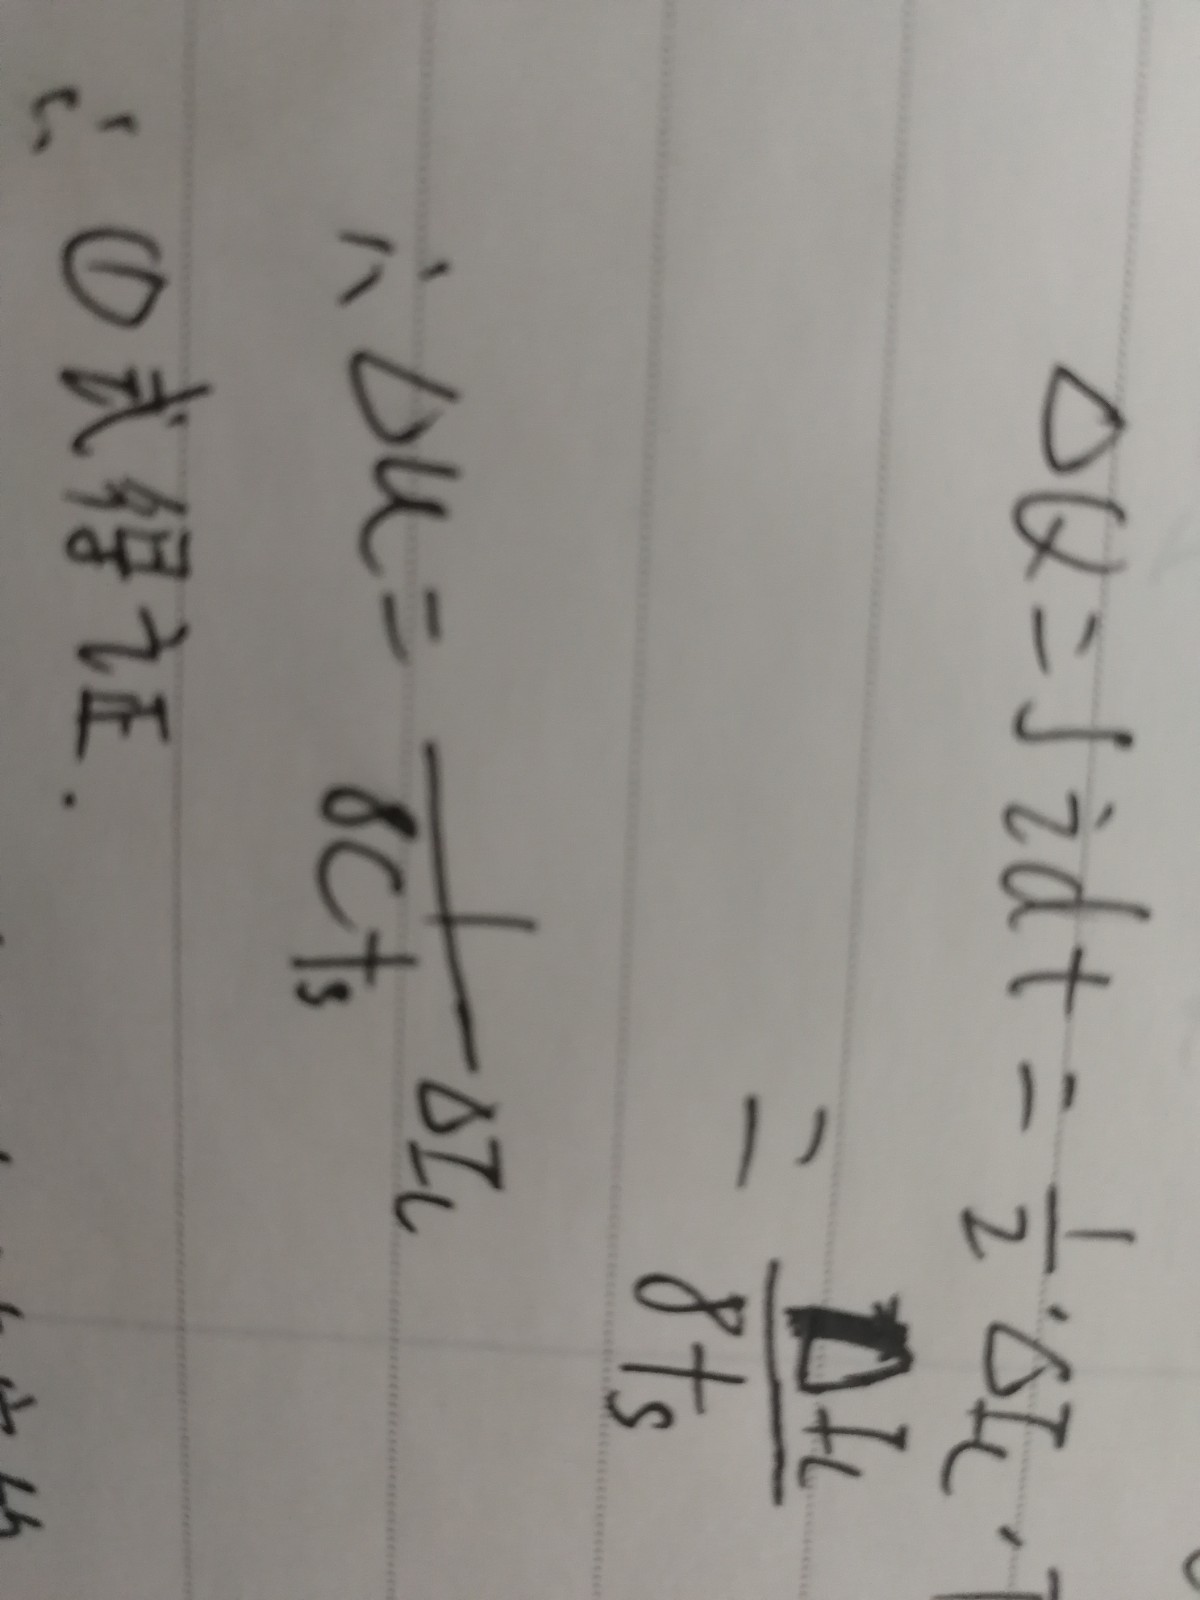 ΔQ = ∫idt = 1/2 · ΔI_L ·
= ΔI_L / 8f_s
∴ Δu = 1/(8Cf_s) ΔI_L
∴ ①式得证.